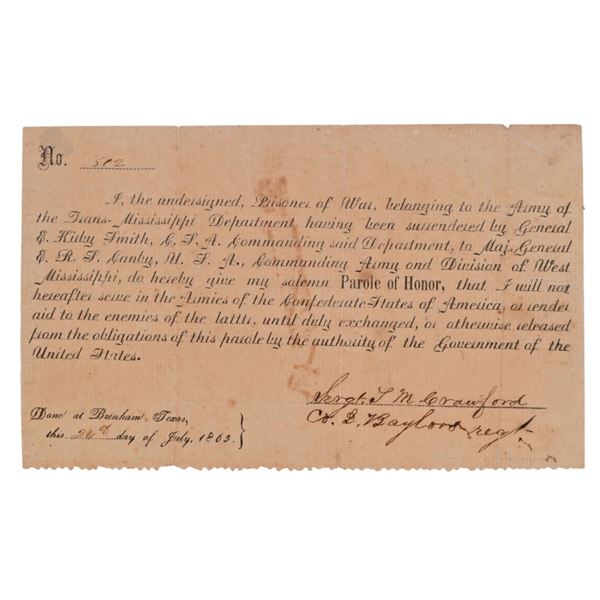 No. 502
I, the undersigned, Prisoner of War, belonging to the Army of
the Trans-Mississippi Department, having been surrendered by General
E. Kirby Smith, C. S. A. Commanding said Department, to Maj. General
E. R. S. Canby, U. S. A., Commanding Army and Division of West
Mississippi, do hereby give my solemn Parole of Honor, that I will not
hereafter serve in the Armies of the Confederate States of America, or render
aid to the enemies of the latter, until duly exchanged, or otherwise released
from the obligations of this parole by the authority of the Government of the
United States.
Sergt. T M Crawford
Co. E. Baylors regt.
Done at Brenham, Texas,
this day of July, 1865.